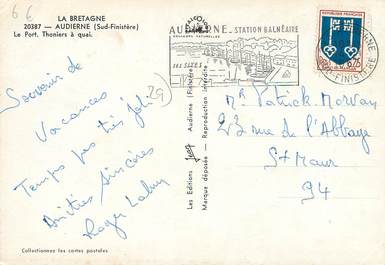 66
LA BRETAGNE
20387 - AUDIERNE (Sud-Finistère)
Le Port. Thoniers à quai.
Souvenir de
Vacances
Temps pas très joli
Amitiés sincères
Roger
29
Collectionnez les cartes postales
Les Editions JOS Audierne Finistère
Marque déposée - Reproduction interdite
AUDIERNE - STATION BALNÉAIRE
SES SITES
REPUBLIQUE FRANÇAISE
Mr Patrick Morvan
23 rue de l'Abbaye
St Maur
94